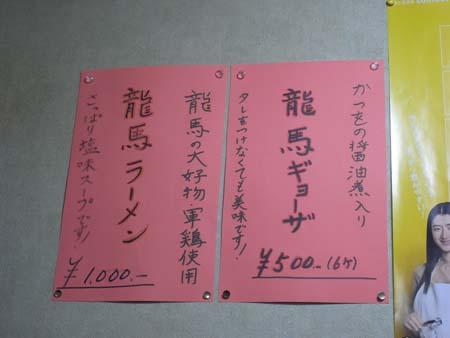 かつをの醤油煮入り
龍馬ギョーザ
タレをつけなくても美味です!
¥500.-(6ケ)
龍馬の大好物・軍鶏使用
龍馬ラーメン
さっぱり塩味スープです!
¥1,000.-